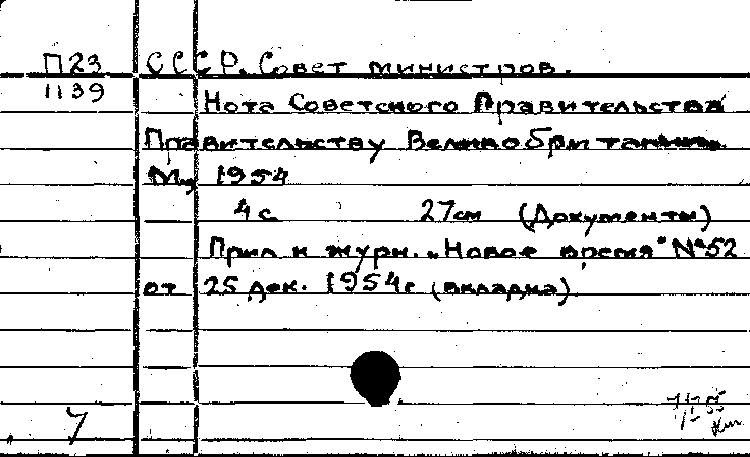 П23 СССР. Совет министров.
1139 Нота Советского Правительства
Правительству Великобритании.
М., 1954
4с 27см (Документы)
Прил к журн. „Новое время" №52
от 25 дек. 1954г (вкладка)
7